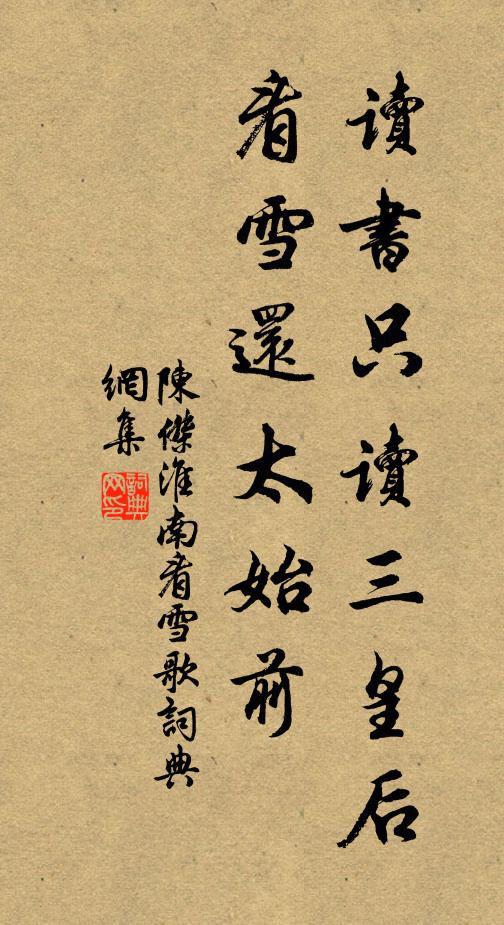 讀書只讀三皇后
看雪還太始前
陳傑淮南看雪歌詞典
網集
詞典
网印